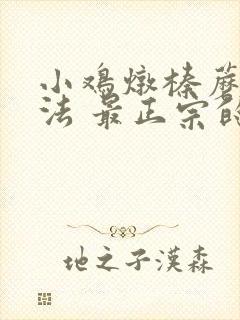 小鸡燉榛蘑
法 最正宗的
地之子漢森